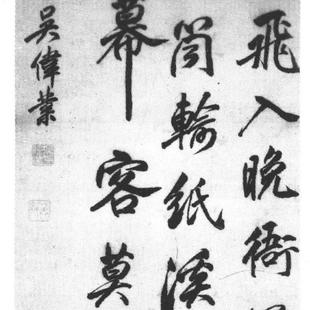 飛入晚衙
輸紙溪
幕客莫
吳偉業